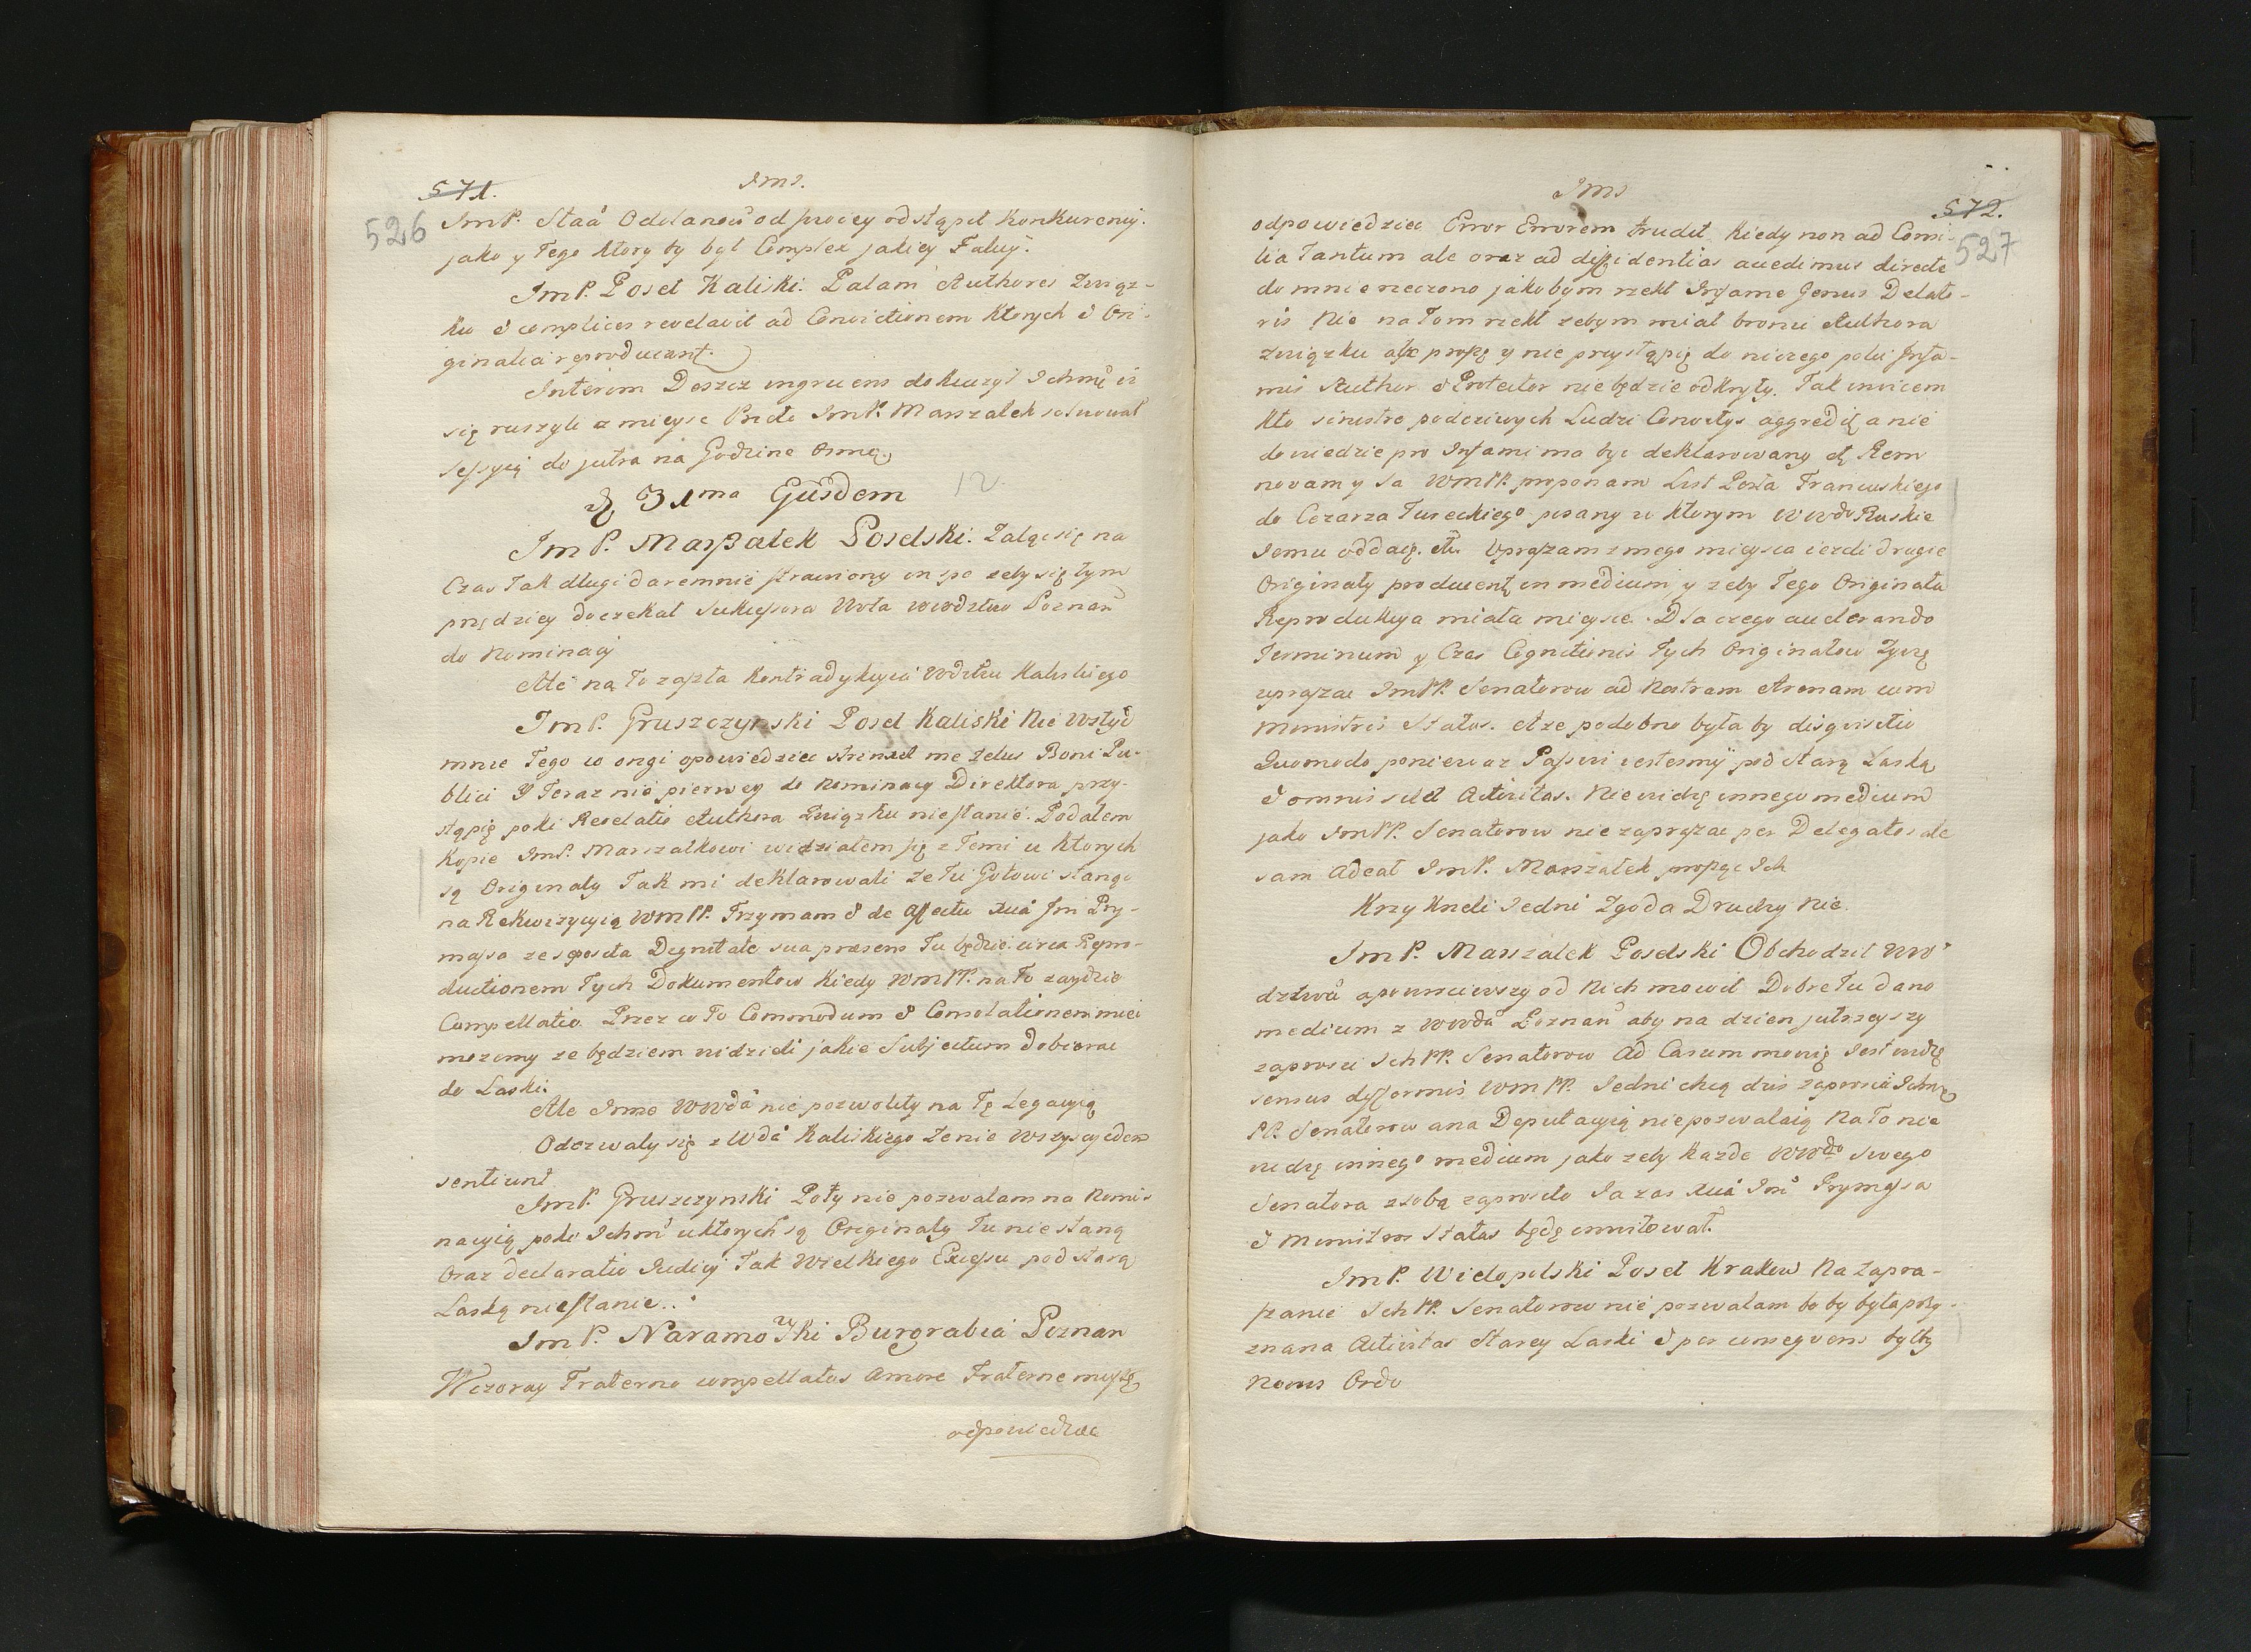 571.
Jms.
526
JmP. Staa Odolanow od swoiey odstąpił Konkurencij.
jako y Tego ktory by był Complex jakiey Faluij.
JmP. Poseł Kaliski: Palam Authores Związ-
ku & complices revelavit ad Convictionem Ktorych & Ori-
ginalia reproducant.
Interim Deszcz ingruens dokuczył Ichmę iż
się ruszyli z mieysc Prdto JmP. Marszałek solwował
sessyią do jutra na Godzine osmą
31ma Eiusdem
12
JmP. Marszałek Poselski: Zaląc się na
Czas Tak długi daremnie strawiony in spe zeby się tym
prędziey doczekał Sukcessora Vota wwdztwo Poznan
do Nominacij
Ale na To zaszła Kontradykcyia Wdztwu Kaliskiego
JmP. Gruszczynski Poseł Kaliski Nie Wstyd
mnie Tego co ongi opowiedziec strinxit me Zelus Boni Pu-
blici y Teraz nie pierwey do Nominacij Direktora przy-
stąpię poki Revelatio Authora Związku nie stanie. Podałem
Kopie JmP. Marszałkowi widziałem się z Temi u Ktorych
są Originały Tak mi deklarowali ze Tu Gotowi stanąć
na Rekwizycyią WmPP. Trzymam & de affectu Xcia Jmi Pry-
masa ze sposita Dignitate sua praesens Tu będzie circa Repro-
ductionem Tych Dokumentow Kiedy WmPP. na To zaydzie
Compellatio. Przez co To Commodum & Consolationem miec
mozemy ze będziem widzieli jakie Subjectum dobierac
do Laski.
Ale Inne WWda nie pozwoliły na Tę Legacyią
Odezwały się z Wda Kaliskiego ze nie Wszyscy eden
sentiunt
JmP. Gruszczynski Poty nie pozwalam na Nomi-
nacyią poki Ichm u ktorych są Originały Tu nie staną
Oraz declaratio Iudicij Tak Wielkiego Excessu pod starą
Laską nie stanie.
JmP. Naramowski Burgrabia Poznan
Wczoray Fraterno compellatus Amore Fraterne muszę
odpowiedziec
Jms
572.
527
odpowiedziec Error Errorem trudit Kiedy non ad Comi-
tia Tantum ale oraz ad diffidentias accedimus directe
do mnie rzeczono jakobym rzekł Infame Genus Delato-
ris Nie na Tom rzekł zebym miał bronic Authora
związku alße proszę y nie przystąpię do niczego poki Infa-
mis Author & Protector nie będzie odkryty. Tak invicem
Kto sinistre podcziwych Ludzi Convitijs aggredit a nie
dowiedzie pro Infami ma byc deklarowany Rem
novam y Ja WmPP. proponam List Posła Francuskiego
do Cezarza Tureckiego pisany w ktorym WWdo Ruskie
Jemu oddaią. Upraszam z mego mieysca iezeli drugie
Originały producent in medium y zeby Tego Originału
Reprodukcya miała mieysce. Dla czego accelerando
Terminum y Czas Cognitionis Tych Originałow Zyczę
upraszac JmPP. Senatorow ad Nostram Arenam cum
Ministris Status. A ze podobno była by disquisitio
Quomodo poniewaz Passivi iestesmy pod starą Laską
& omnis silet Activitas. Nie widzę innego medium
jako JmPP. Senatorow nie zapraszac per Delegatos ale
sam Adeat JmP. Marszałek prosząc Ich
Krzykneli Jedni Zgoda Drudzy Nie.
JmP. Marszałek Poselski Obchodził WW-
dztwa a powrociwszy od Nich mowił Dobre Tu dano
medium z WWda Poznan aby na dzien jutrzeyszy
zaprosic Ich PP. Senatorow Ad Casum mowię Jest widzę
sensus difformis WmPP. Jedni chcą dzis zaprosic Ichm
PP. Senatorow a na Deputacyią nie pozwalaią Na To nie
widzę innego medium jako zeby Kazde WWdo swego
Senatora z sobą zaprosiło Ja zas Xcia Jmi Prymasa
& Ministros Status będę invitował.
JmP. Wielopolski Poseł Krakow Na Zapra-
szanie Ich PP. Senatorow nie pozwalam bo by była przy-
znana Activitas Starey Laski & per consequens byłby
Novus Ordo